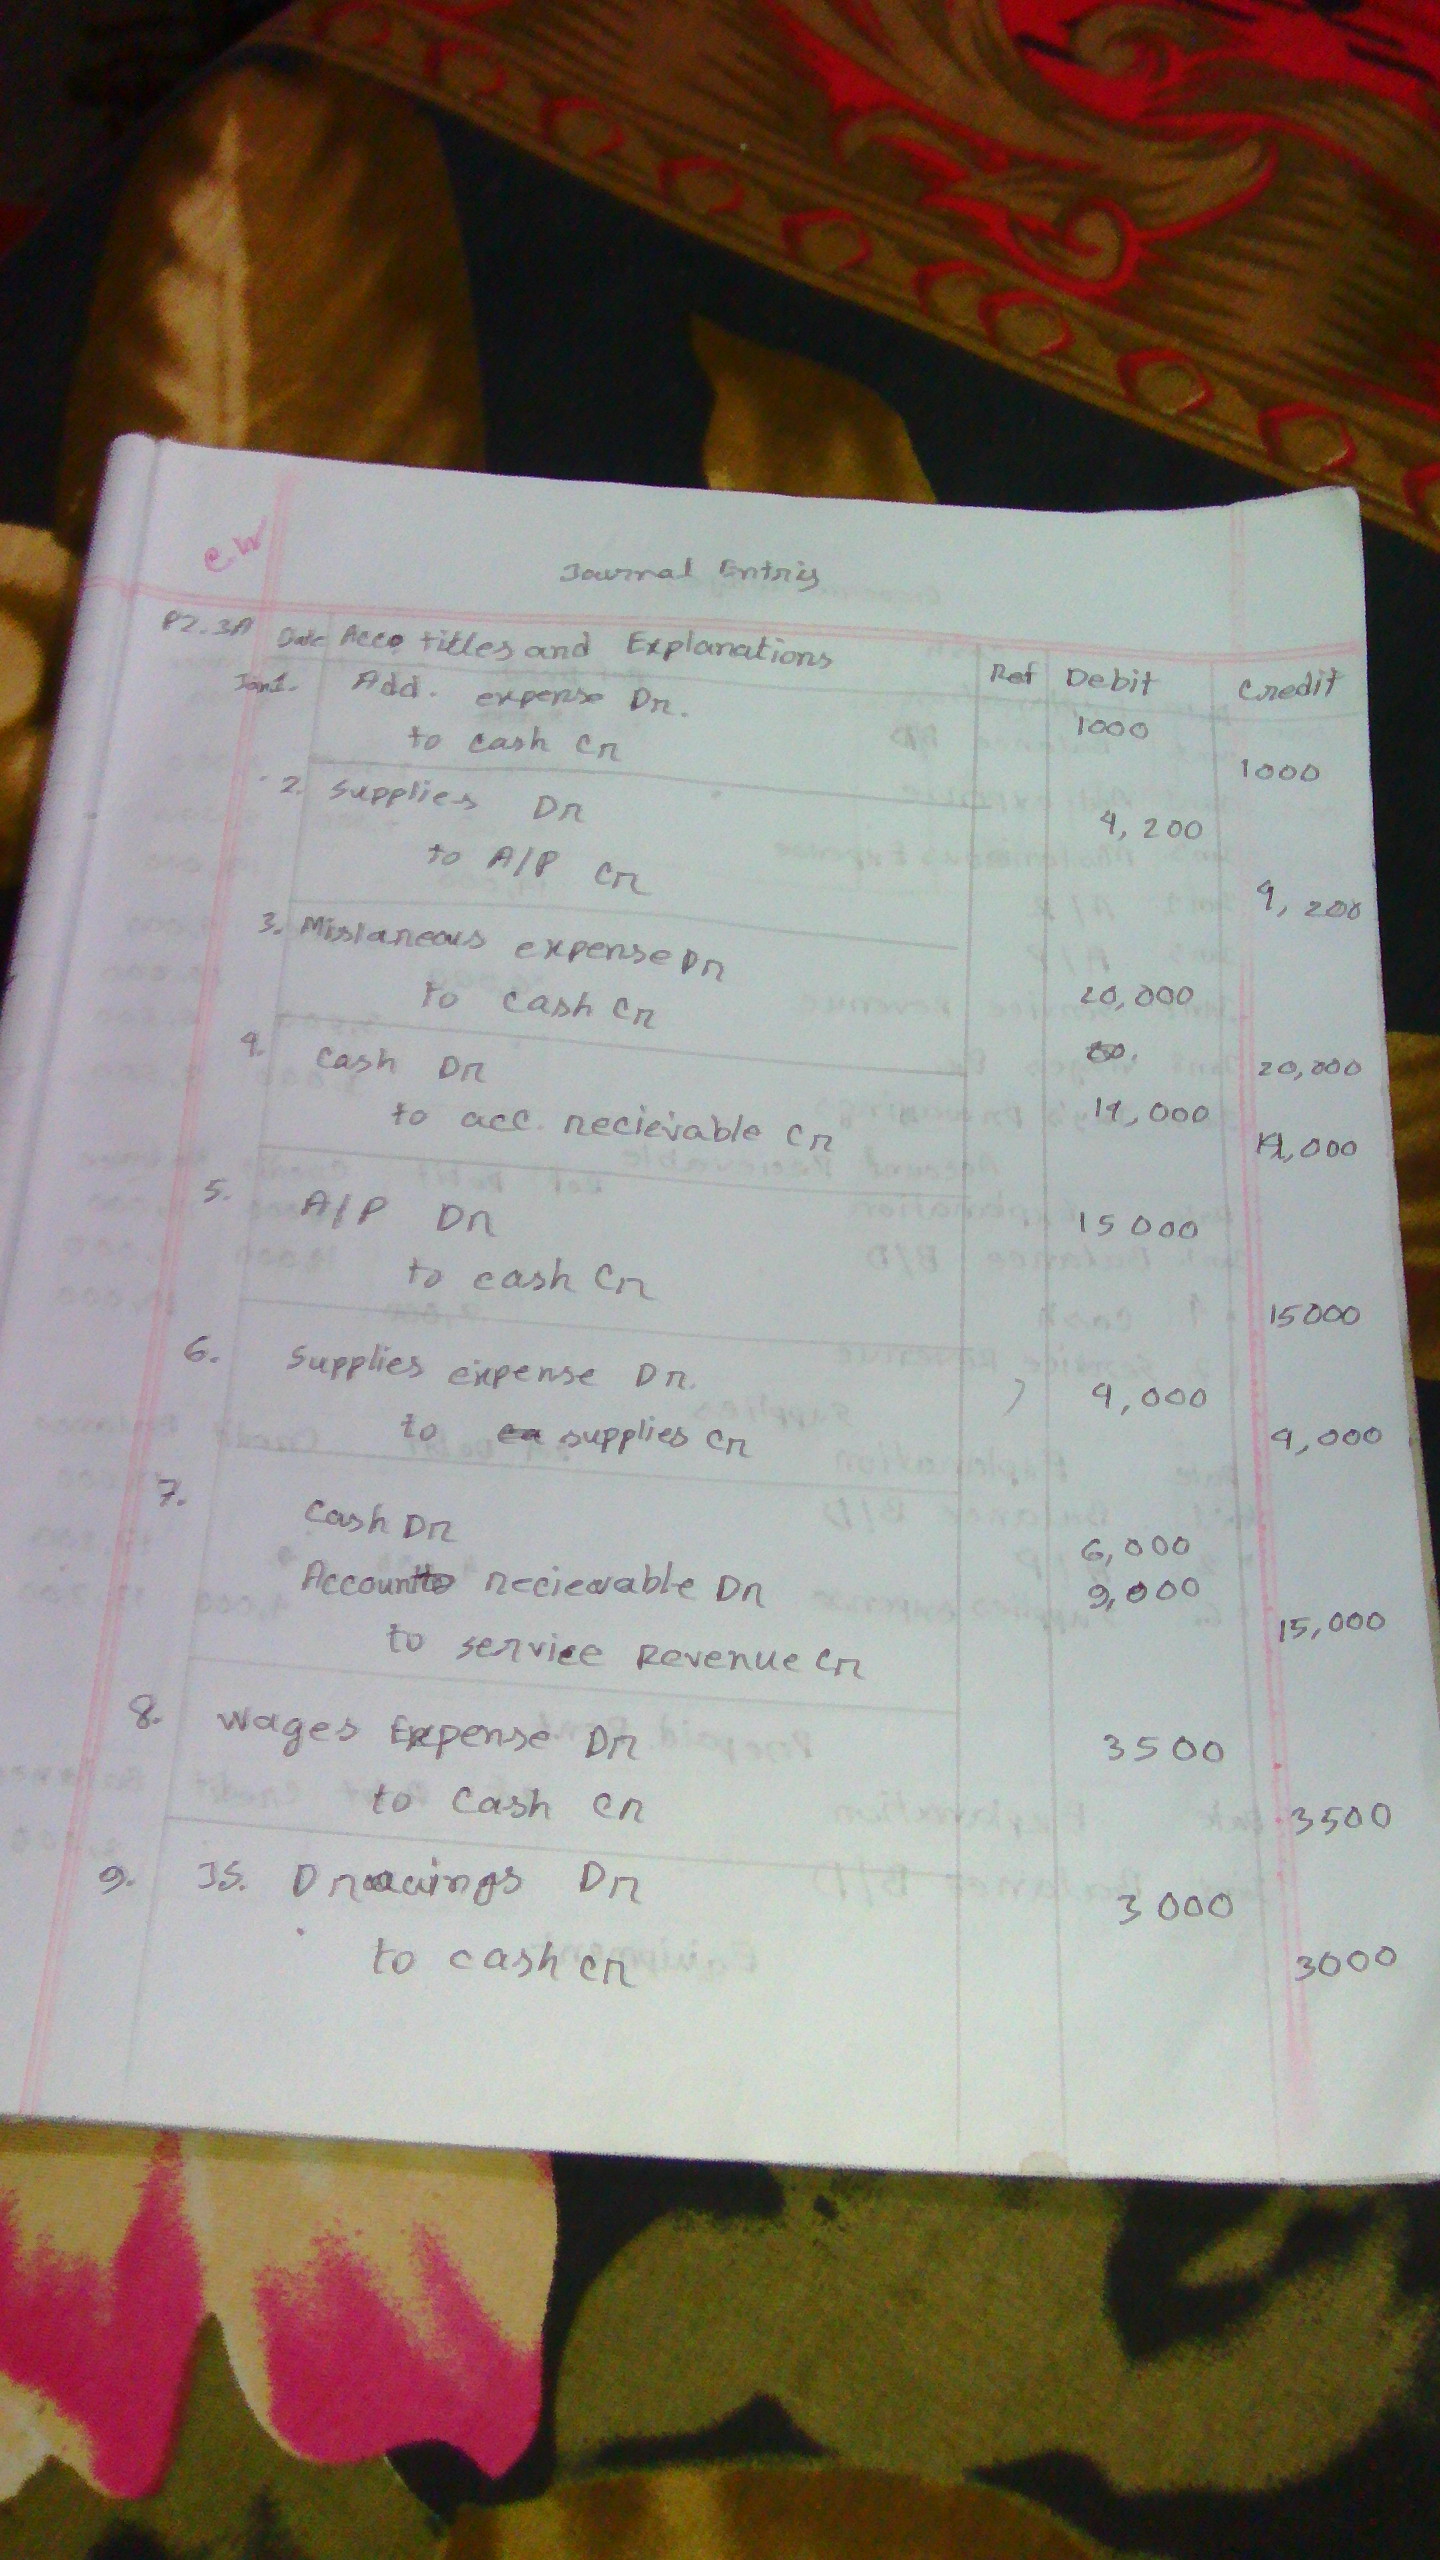 CW
Journal Entris
P2.3A Date Acco titles and Explanations Ref Debit Credit
Jan1. Add. expense Dr. 1000
to cash Cr 1000
2. Supplies Dr 4,200
to A/P Cr 4,200
3. Mislaneous expense Dr 20,000
to cash Cr 20,000
4. Cash Dr 14,000
to acc. recievable Cr 14,000
5. A/P Dr 15000
to cash Cr 15000
6. Supplies expense Dr. 4,000
to supplies Cr 4,000
7. Cash Dr 6,000
Account recievable Dr 9,000
to service Revenue Cr 15,000
8. Wages Expense Dr 3500
to Cash Cr 3500
9. JS. Drawings Dr 3000
to cash Cr 3000